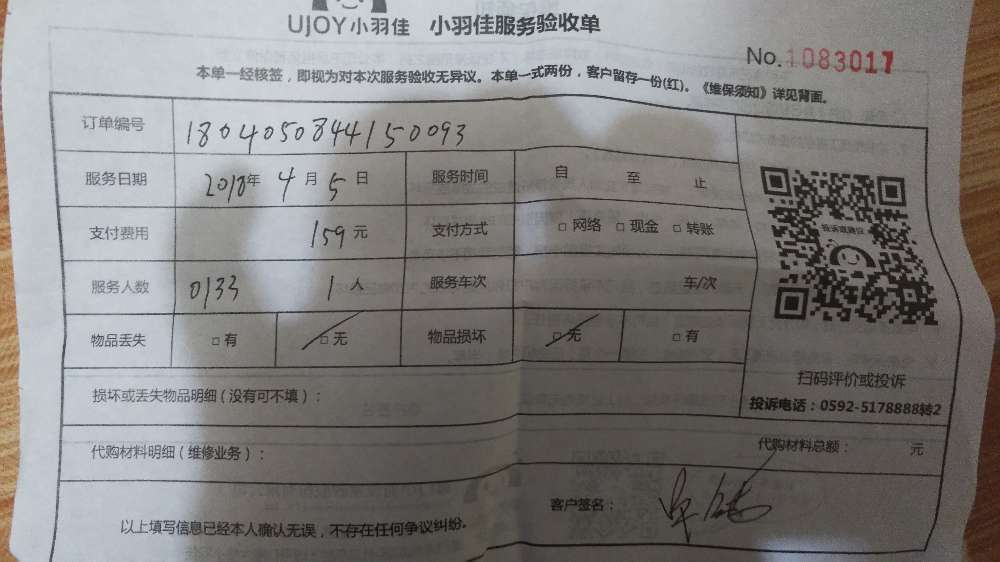 UJOY小羽佳 小羽佳服务验收单
No.1083017
本单一经核签，即视为对本次服务验收无异议。本单一式两份，客户留存一份(红)。《维保须知》详见背面。
订单编号 1804050844150093
服务日期 2018年 4月 5日 服务时间 自 至 止
支付费用 159元 支付方式 □网络 □现金 □转账
服务人数 0133 1人 服务车次 车/次
物品丢失 □有 □无 物品损坏 □无 □有
投诉或建议
扫码评价或投诉
投诉电话：0592-5178888转2
损坏或丢失物品明细（没有可不填）：
代购材料明细（维修业务）： 代购材料总额： 元
以上填写信息已经本人确认无误，不存在任何争议纠纷. 客户签名：